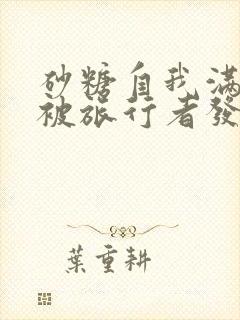 砂糖自我滿
被旅行者發
葉重耕